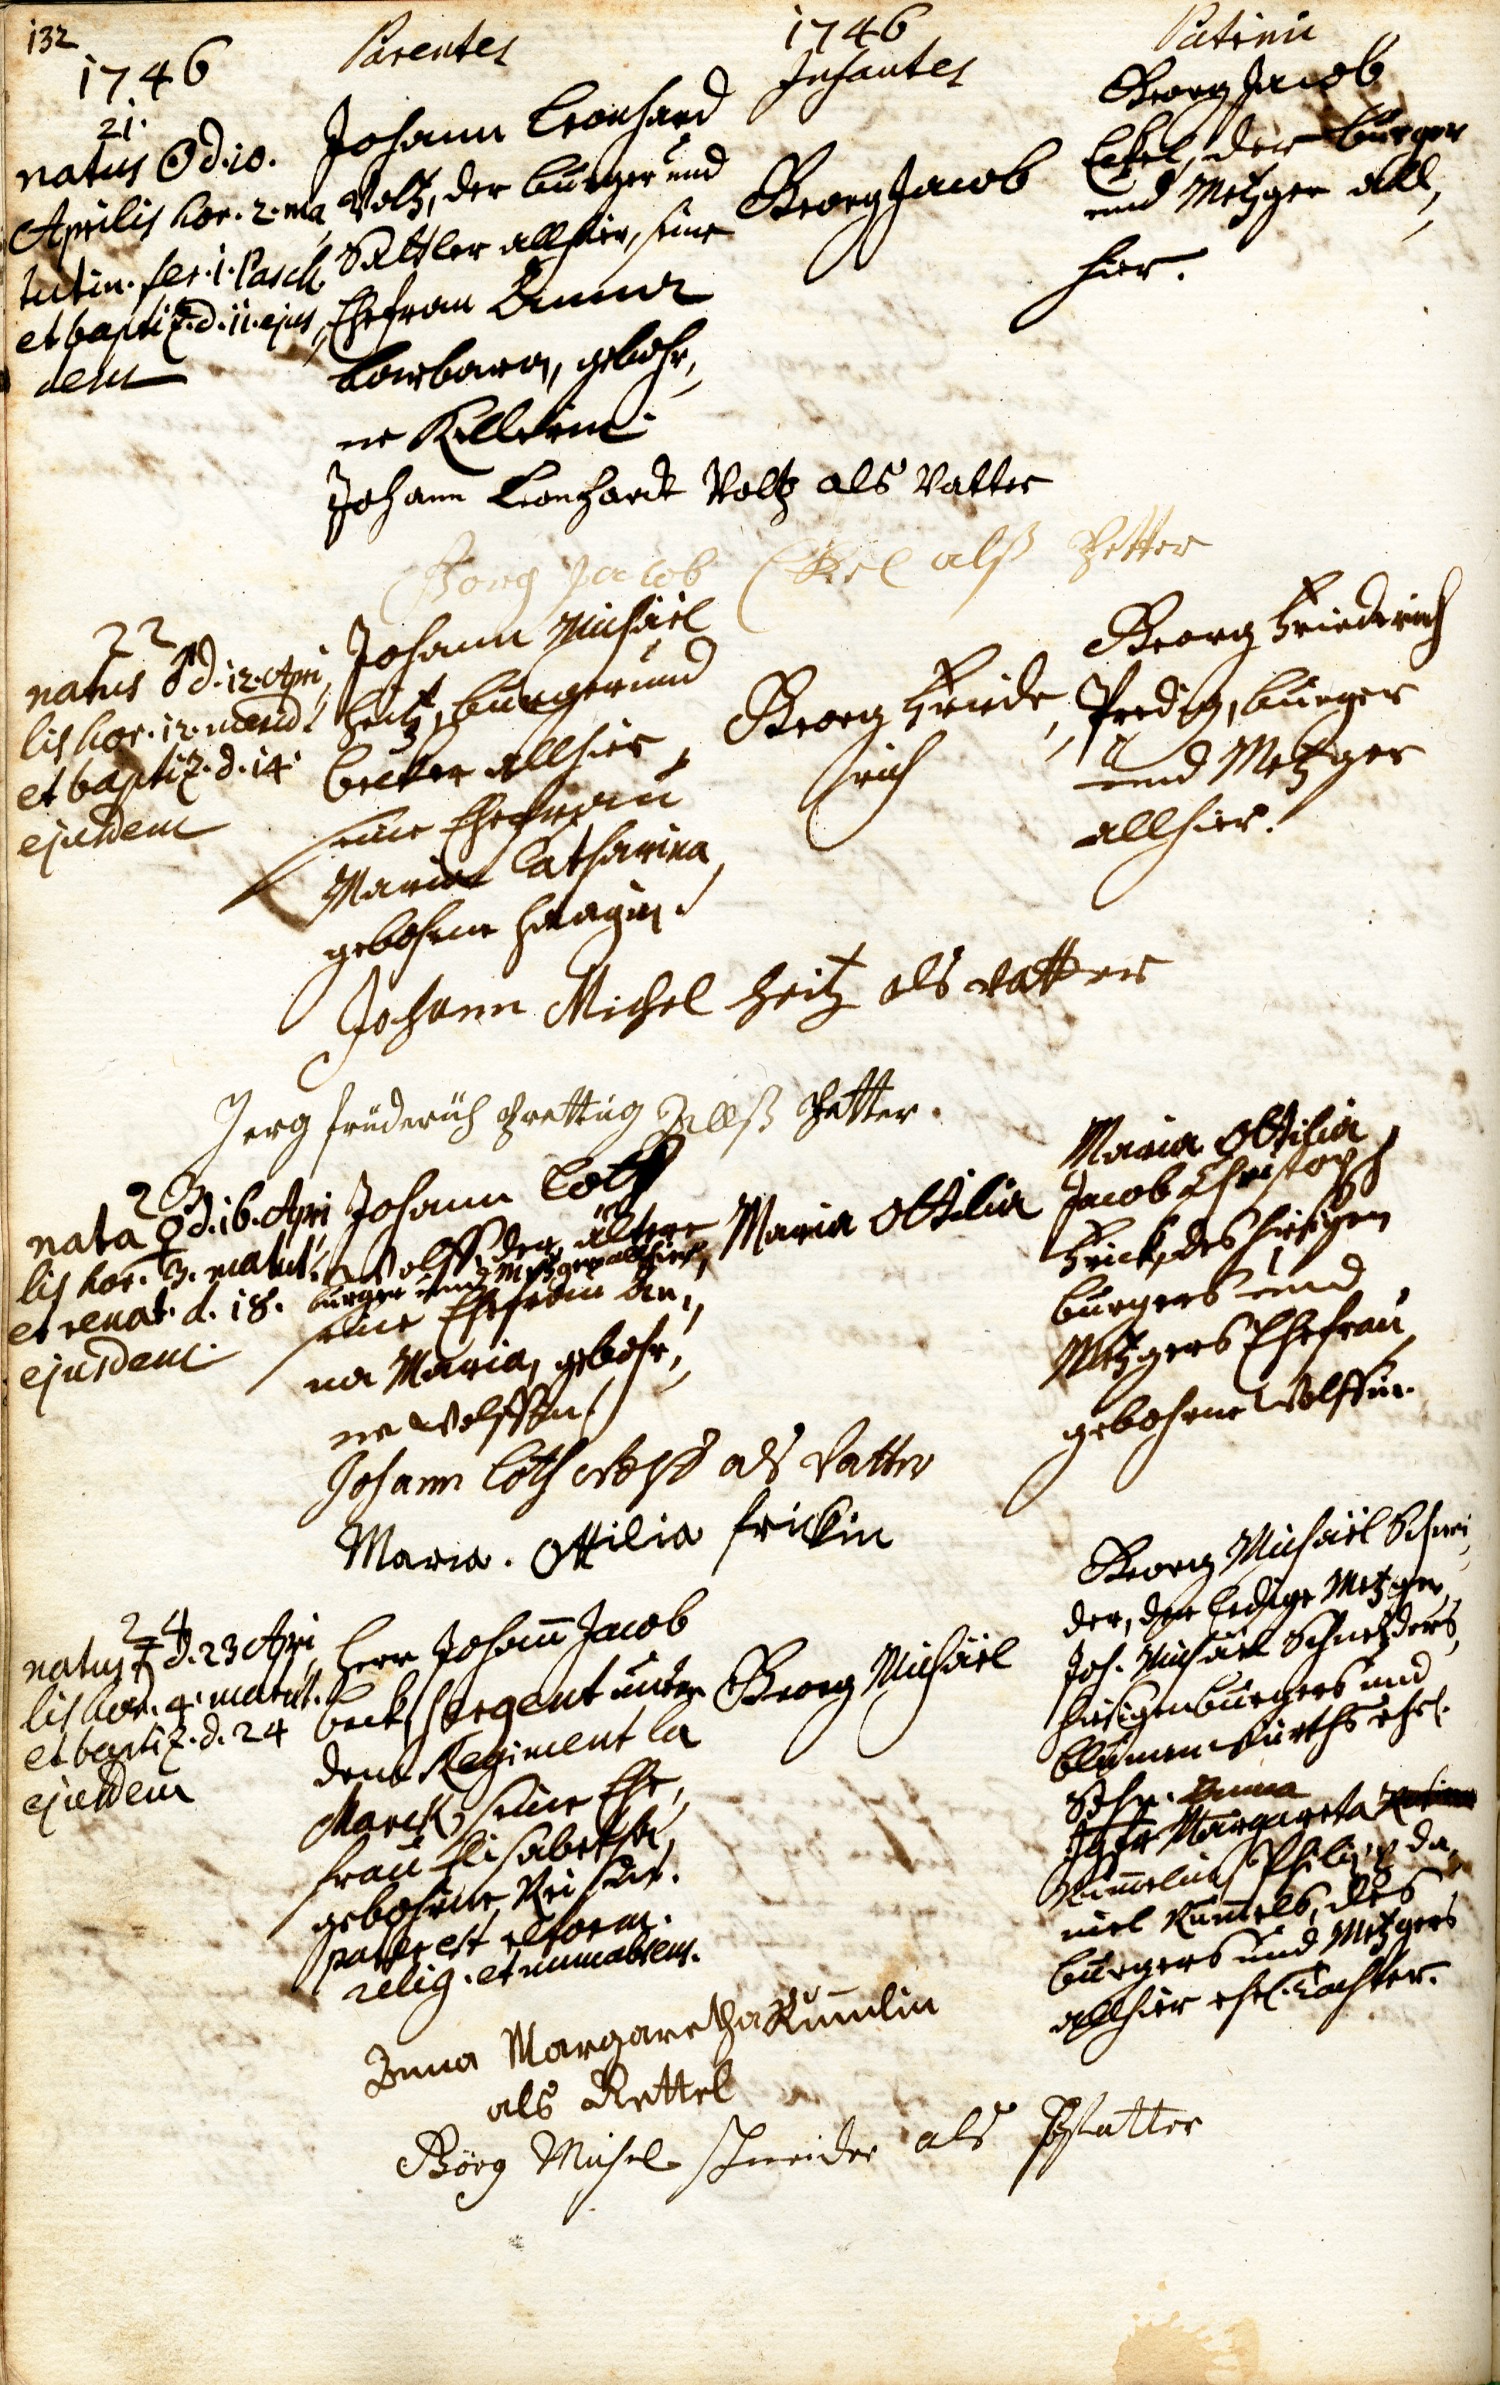 132
1746
Parentes
1746
Infantes
Patrini
21.
natus ☉ d. 10.
Aprilis hor. 2. ma,
tutin. fer. 1. Pasch.
et baptiz. d. 11. ejus,
dem
Johann Leonhard
Voltz, der burger und
Sattler allhier, seine
Ehefrau Anna
Barbara, gebohr,
ne Kellerin.
Georg Jacob
Georg Jacob
Eckel, der burger
und Metzger all,
hier.
Johann Leonhardt Voltz als Vatter
Georg Jacob Eckel alß Petter
22
natus ♂ d. 12. Apri,
lis hor. 12. merid.
et baptiz. d. 14.
ejusdem
Johann Michael
Heitz, burger und
becker allhier,
seine Ehefrau
Maria Catharina,
gebohrne Haagin.
Georg Friede,
rich
Georg Friederich
Predig, burger
und Metzger
allhier.
Johann Michel Heitz als vatter
Jerg friiderich Prettiig allß Petter.
23
nata d. 16. Apri,
lis hor. 3. matut.
et renat. d. 18.
ejusdem.
Johann Loth
Wolff, der ältere
burger und Metzger allhier,
seine Ehefrau An,
na Maria, gebohr,
ne Wolffin
Maria Ottilia
Maria Ottilia,
Jacob Christoph
Frick, des hiesigen
burgers und
Metzgers Ehefrau,
gebohrne Wolffin.
Johann Loth Wolff als Vatter
Maria. Ottilia frickin
24
natus d. 23 Apri,
lis hor. 4. matut.
et baptiz. d. 24
ejusdem
Herr Johann Jacob
beck, Sergent unter
dem Regiment la
Marck, seine Ehe,
frau Elisabetha,
gebohrne
pater est reform.
relig. et absens.
Georg Michael
Georg Michael Schnei,
der, der ledige Metzger,
Joh. Michael Schneiders,
hiesigen burgers und
blumenwürths ehel.
Sohn. Anna
Jgfr. Margareta
Kümmelin, Philipp Da,
niel Kümmels, des
burgers und Metzgers
allhier ehel. Tochter.
Anna Margaretha Kümlin
als Gettel
Görg Michel schneider als Pfatter